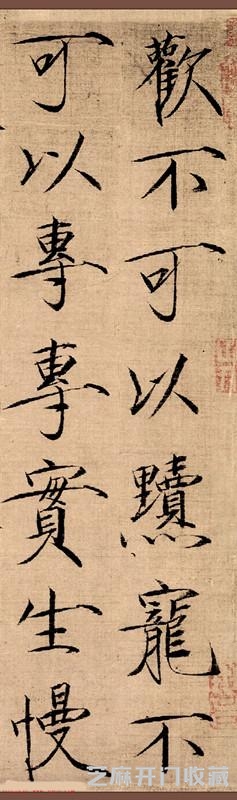 歡不可以黷寵不
可以專專實生慢
芝麻开门收藏